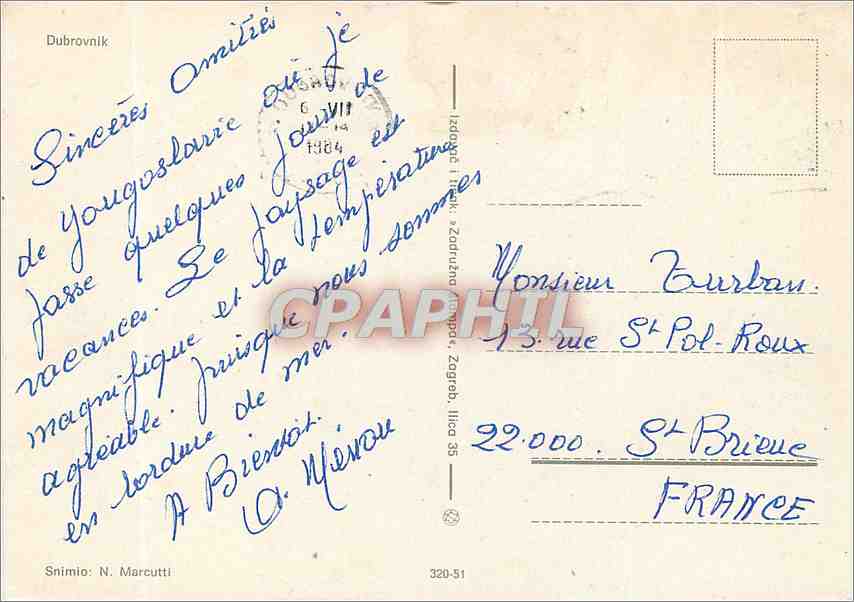 Dubrovnik
Sincères amitiés
de Yougoslavie où je
passe quelques jours de
vacances. Le paysage est
magnifique et la température
agréable. puisque nous sommes
en bordure de mer.
A Bientôt.
6 VII
1984
Izdavač i tisak: »Zadružna štampa«, Zagreb, Ilica 35
Monsieur Turban.
13 rue St Pol-Roux
22.000. St Brieuc
FRANCE
CPAPHIL
Snimio: N. Marcutti
320-51